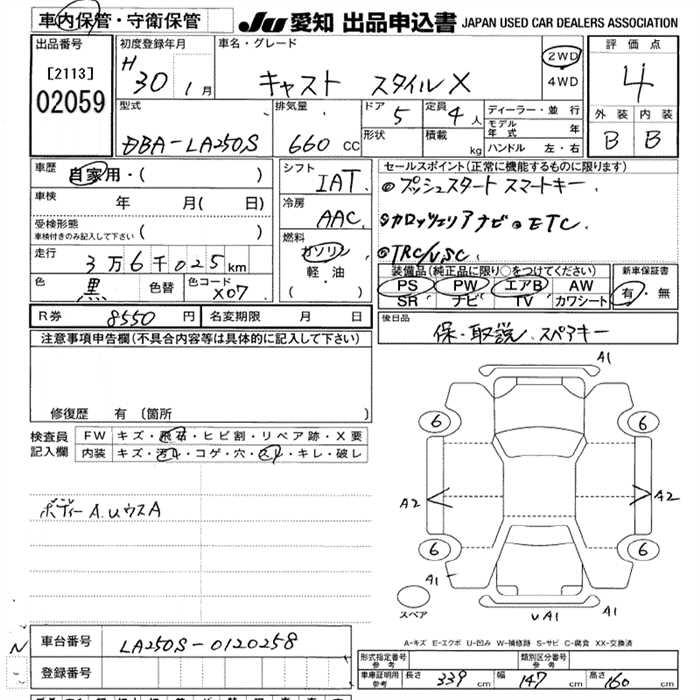 車内保管・守衛保管
JU 愛知 出品申込書 JAPAN USED CAR DEALERS ASSOCIATION
出品番号
[2113]
02059
初度登録年月
H 30年 1月
車名・グレード
キャスト スタイルX
2WD
4WD
評価点
4
型式
DBA-LA250S
排気量
660 CC
ドア
5
形状
定員
4人
積載
kg
ディーラー・並行
モデル年式 年
ハンドル 左・右
外装 内装
B B
車歴
自家用・( )
車検
年 月( 日)
受検形態
車検付きのみ記入して下さい ( )
走行
3万6千025km
色
黒
色替
色コード
X07
シフト
IAT
冷房
AAC
燃料
ガソリン
軽・油
( ・ )
セールスポイント(正常に機能するものに限ります)
◎プッシュスタート スマートキー.
カロッツェリアナビ◎ETC.
◎TRC/VSC
装備品(純正品に限り○をつけてください)
PS PW エアB AW
SR ナビ TV カワシート
新車保証書
有・無
R券 8550円
名変期限 月 日
後日品
保・取説、スペアキー
注意事項申告欄(不具合内容等は具体的に記入して下さい)
修復歴 有 (箇所 )
検査員
記入欄
FW キズ・飛石・ヒビ割・リペア跡・X要
内装 キズ・汚れ・コゲ・穴・スレ・キレ・破レ
ボディーA.UウスA
A1
6 6
A2 A2
6 6
A1 A1
UA1
スペア
A-キズ E-エクボ U-凹み W-補修跡 S-サビ C-腐食 XX-交換済
N
車台番号
LA250S-0120258
登録番号
形式指定番号
参考
類別区分番号
参考
車庫証明用
参考
長さ 339 cm 幅 147 cm 高さ 160 cm